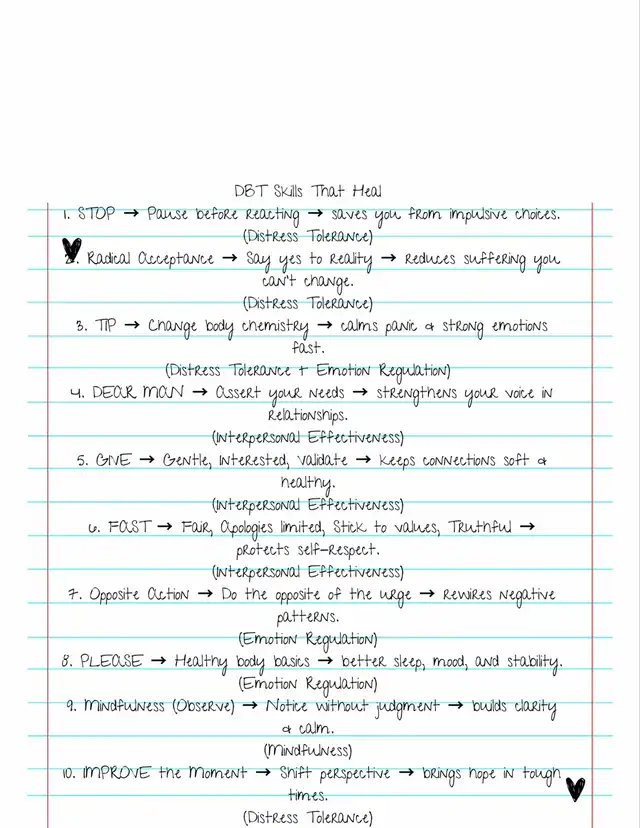 DBT Skills That Heal
1. STOP → Pause before reacting → saves you from impulsive choices.
(Distress Tolerance)
2. Radical Acceptance → Say yes to reality → reduces suffering you
can't change.
(Distress Tolerance)
3. TIP → Change body chemistry → calms panic & strong emotions
fast.
(Distress Tolerance + Emotion Regulation)
4. DEAR MAN → Assert your needs → strengthens your voice in
relationships.
(Interpersonal Effectiveness)
5. GIVE → Gentle, Interested, Validate → Keeps connections soft &
healthy.
(Interpersonal Effectiveness)
6. FAST → Fair, Apologies limited, Stick to values, Truthful →
protects self-respect.
(Interpersonal Effectiveness)
7. Opposite Action → Do the opposite of the urge → rewires negative
patterns.
(Emotion Regulation)
8. PLEASE → Healthy body basics → better sleep, mood, and stability.
(Emotion Regulation)
9. Mindfulness (Observe) → Notice without judgment → builds clarity
& calm.
(Mindfulness)
10. IMPROVE the Moment → Shift perspective → brings hope in tough
times.
(Distress Tolerance)